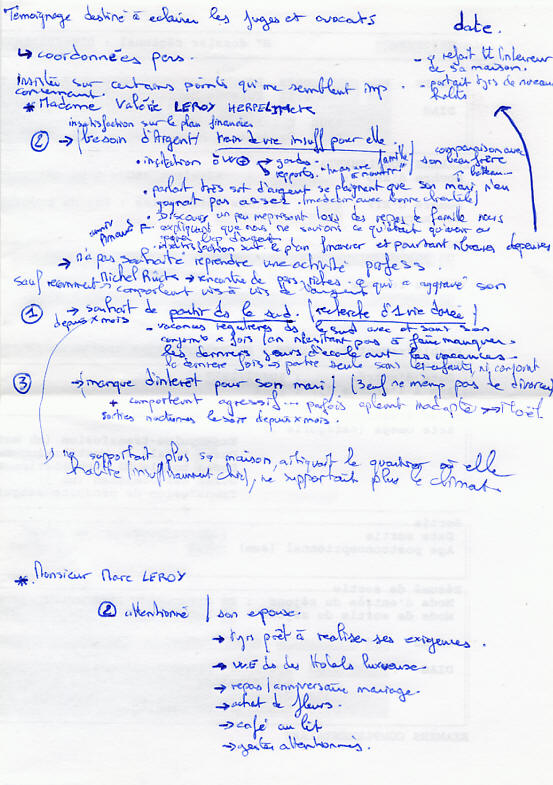 Témoignage destiné à éclairer les juges et avocats
date.
↳ coordonnées pers.
- y refait tt l'intérieur de sa maison.
- portait tjrs de nouveaux habits
insister sur certains points qui me semblent imp.
concernant.
* Madame Valérie LEROY HERPE
insatisfaction sur le plan financier
② → besoin d'Argent / train de vie insuff pour elle
• invitation → gards famille
rapports.
comparaison avec son beau frère
• parlait très svt d'argent se plaignant que son mari n'en gagnait pas assez. (médecin avec bonne clientèle)
• Discours un peu méprisant lors des repas de famille nous expliquant que nous ne savions ce qu'était qu'avoir ou gérer bcp d'argent
• insatisfaction sur le plan financier et pourtant nbreuses dépenses
→ n'a pas souhaité reprendre une activité profess.
sauf récemment Michel → rencontre de pers riches. ce qui a aggravé son comportement vis à vis de l'argent
① → souhait de partir ds le sud. (recherche d'1 vie dorée)
depuis x mois
- vacances régulières ds le sud avec et sans son conjoint x fois (en n'hésitant pas à faire manquer les derniers jours d'école avt les vacances-
la dernière fois → partie seule sans les enfants, ni conjoint
③ → (manque d'intérêt pour son mari) (3 enf ne méritent pas le divorce)
+ comportement agressif... parfois inadapté → Noël
sorties nocturnes le soir depuis x mois.
↳ ne supportait plus sa maison, critiquait le quartier où elle habite (insuffisamment chic), ne supportait plus le climat
* Monsieur Marc LEROY
② attentionné / son épouse.
→ tjrs prêt à réaliser ses exigences.
→ WE ds des Hotels luxueuse.
→ repas / anniversaire mariage.
→ achat de fleurs.
→ café au lit
→ gestes attentionnés.